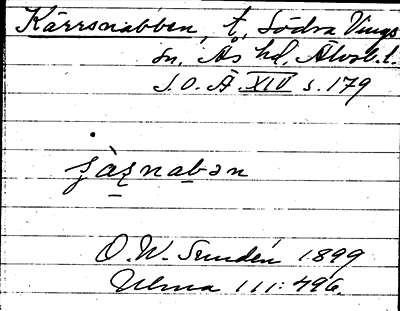 Kärrsnabben, t, Södra Vings
sn, Ås hd, Älvsb. l.
S.O.Ä. XIV s. 179
O. W. Sundén 1899
Ulma 111:496.